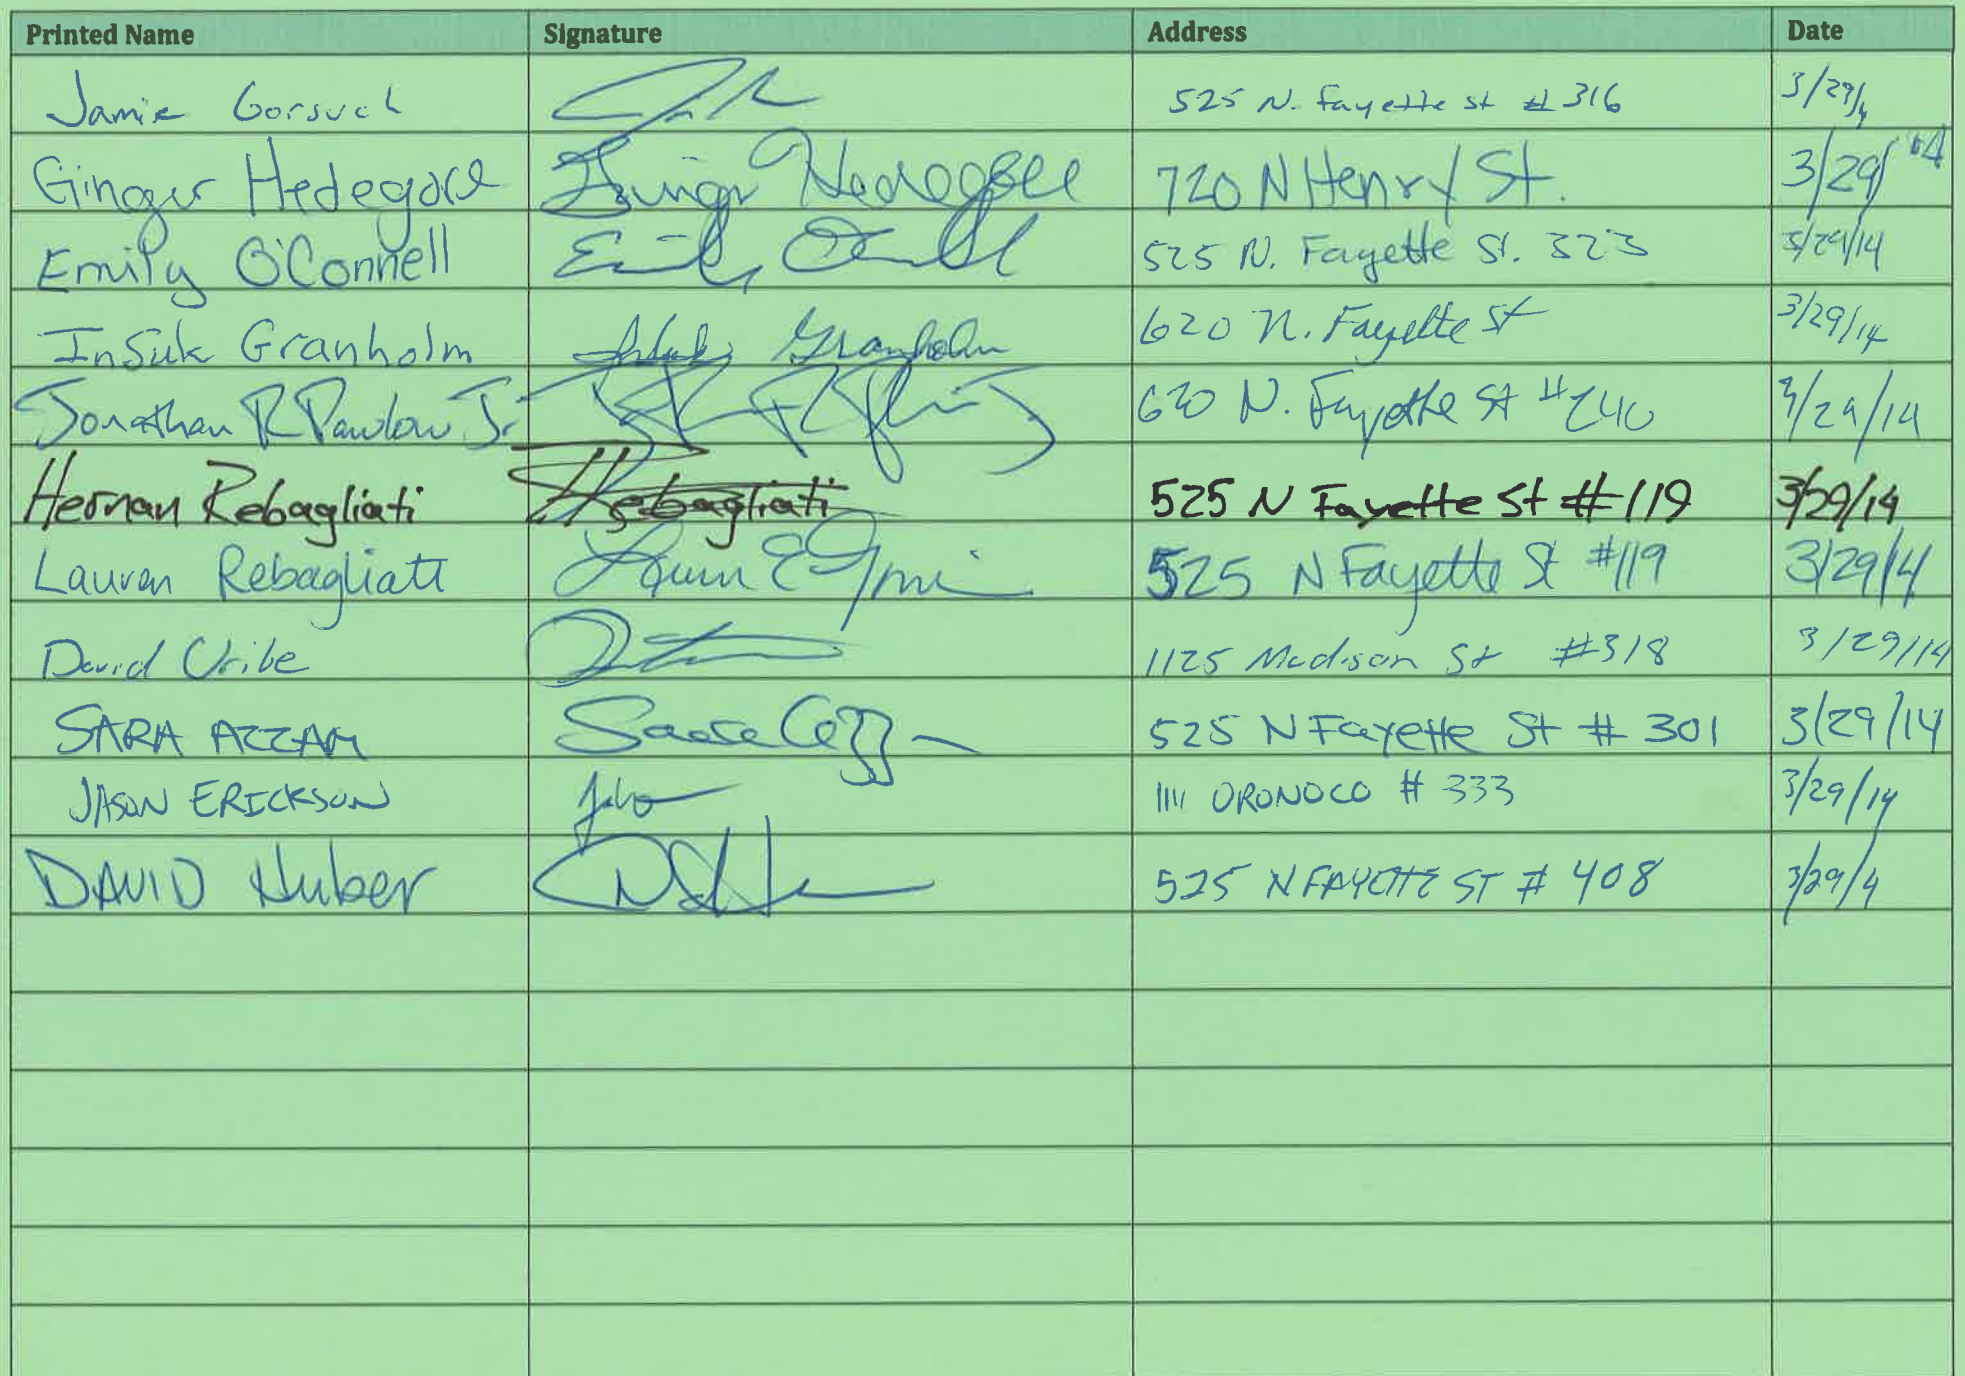 Printed Name Signature Address Date
Jamie Gorsuch 525 N. Fayette st # 316 3/29/
Ginger Hedegore Ginger Hedegore 720 N Henry St. 3/29/14
Emily O'Connell Emily O'Connell 525 N. Fayette St. 323 3/29/14
InSuk Granholm Granholm 620 N. Fayette St 3/29/14
Jonathan R Pawlow Jr. 620 N. Fayette St #240 3/29/14
Hernan Rebagliati HRebagliati 525 N Fayette St #119 3/29/14
Lauren Rebagliati 525 N Fayette St #119 3/29/14
David Uribe 1125 Madison St #318 3/29/14
SARA AZZAM 525 N Fayette St # 301 3/29/14
JASON ERICKSON 1111 ORONOCO # 333 3/29/14
DAVID Huber 525 N FAYETTE ST # 408 3/29/14